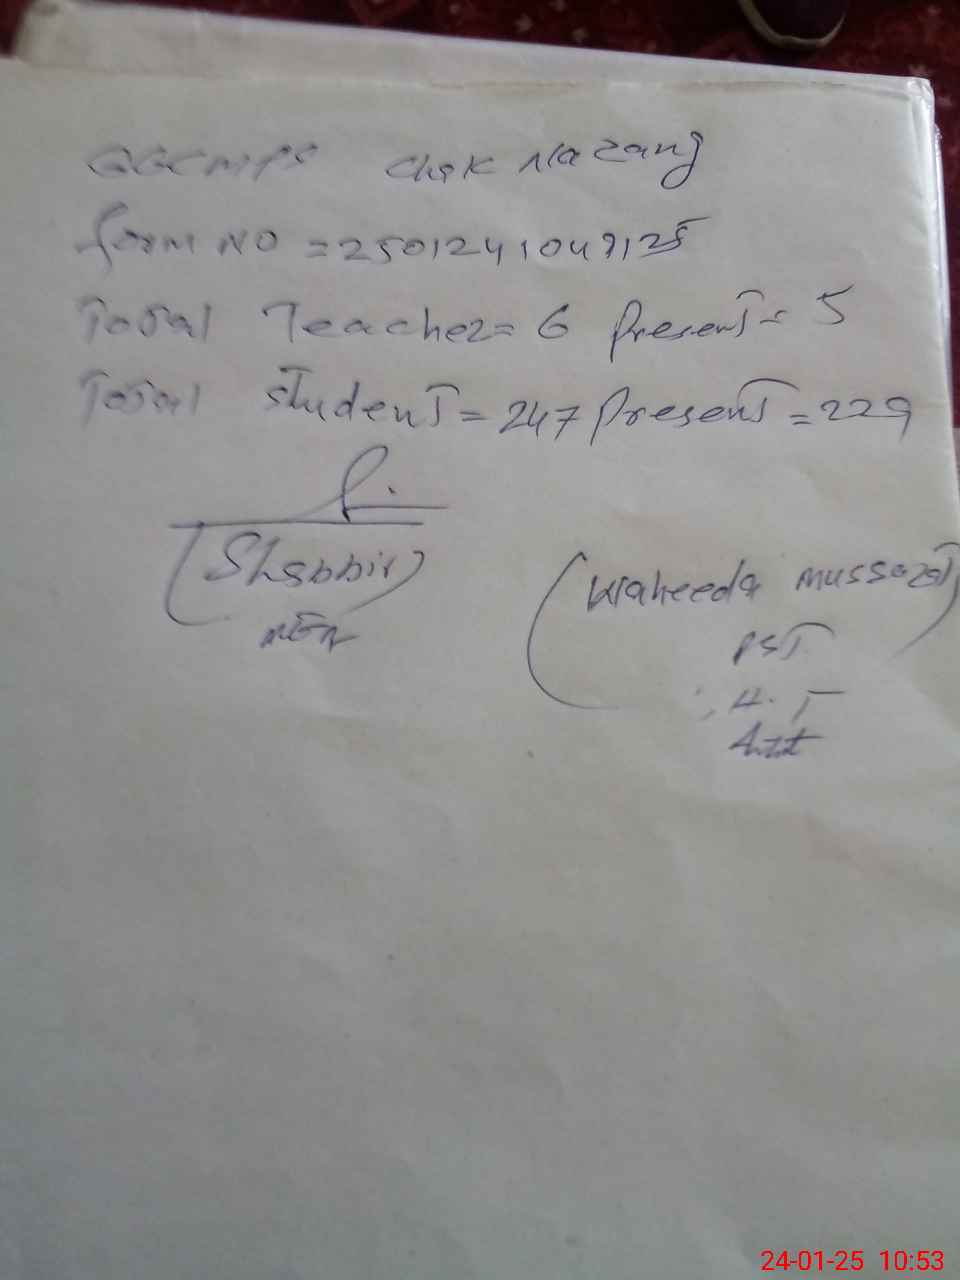 GGCMPS Chak Nazang
form NO = 2501241049125
Total Teacher = 6 Present = 5
Total Student = 247 Present = 229
(Shabbir)
MEA
(Waheeda Mussarat)
PST
H.T
24-01-25 10:53